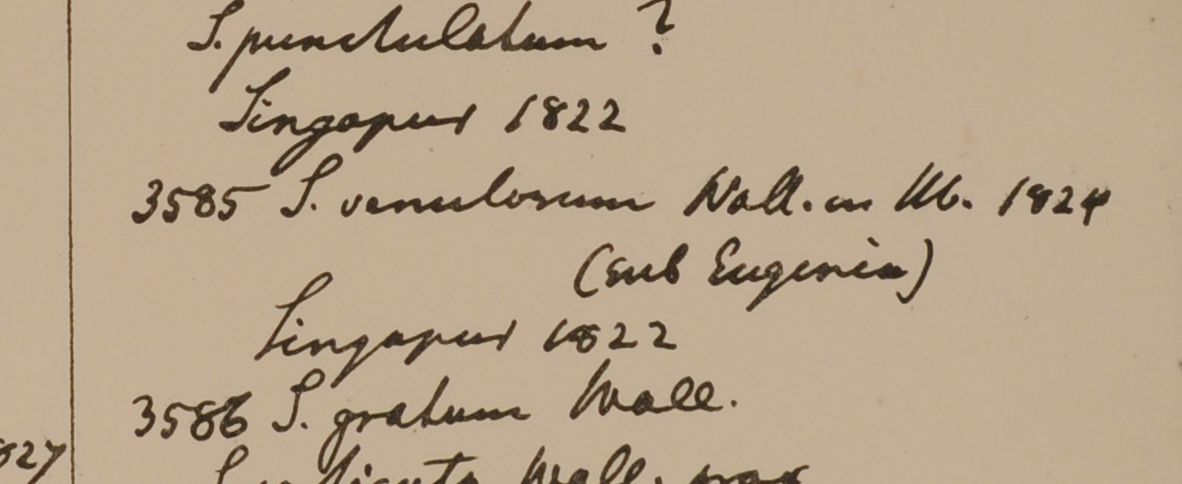 S. punctulatum ?
Singapur 1822
3585 S. venulosum Wall. in
1824
(sub Eugenia)
Singapur 1822
3586 S. gratum Wall.
827
Wall.